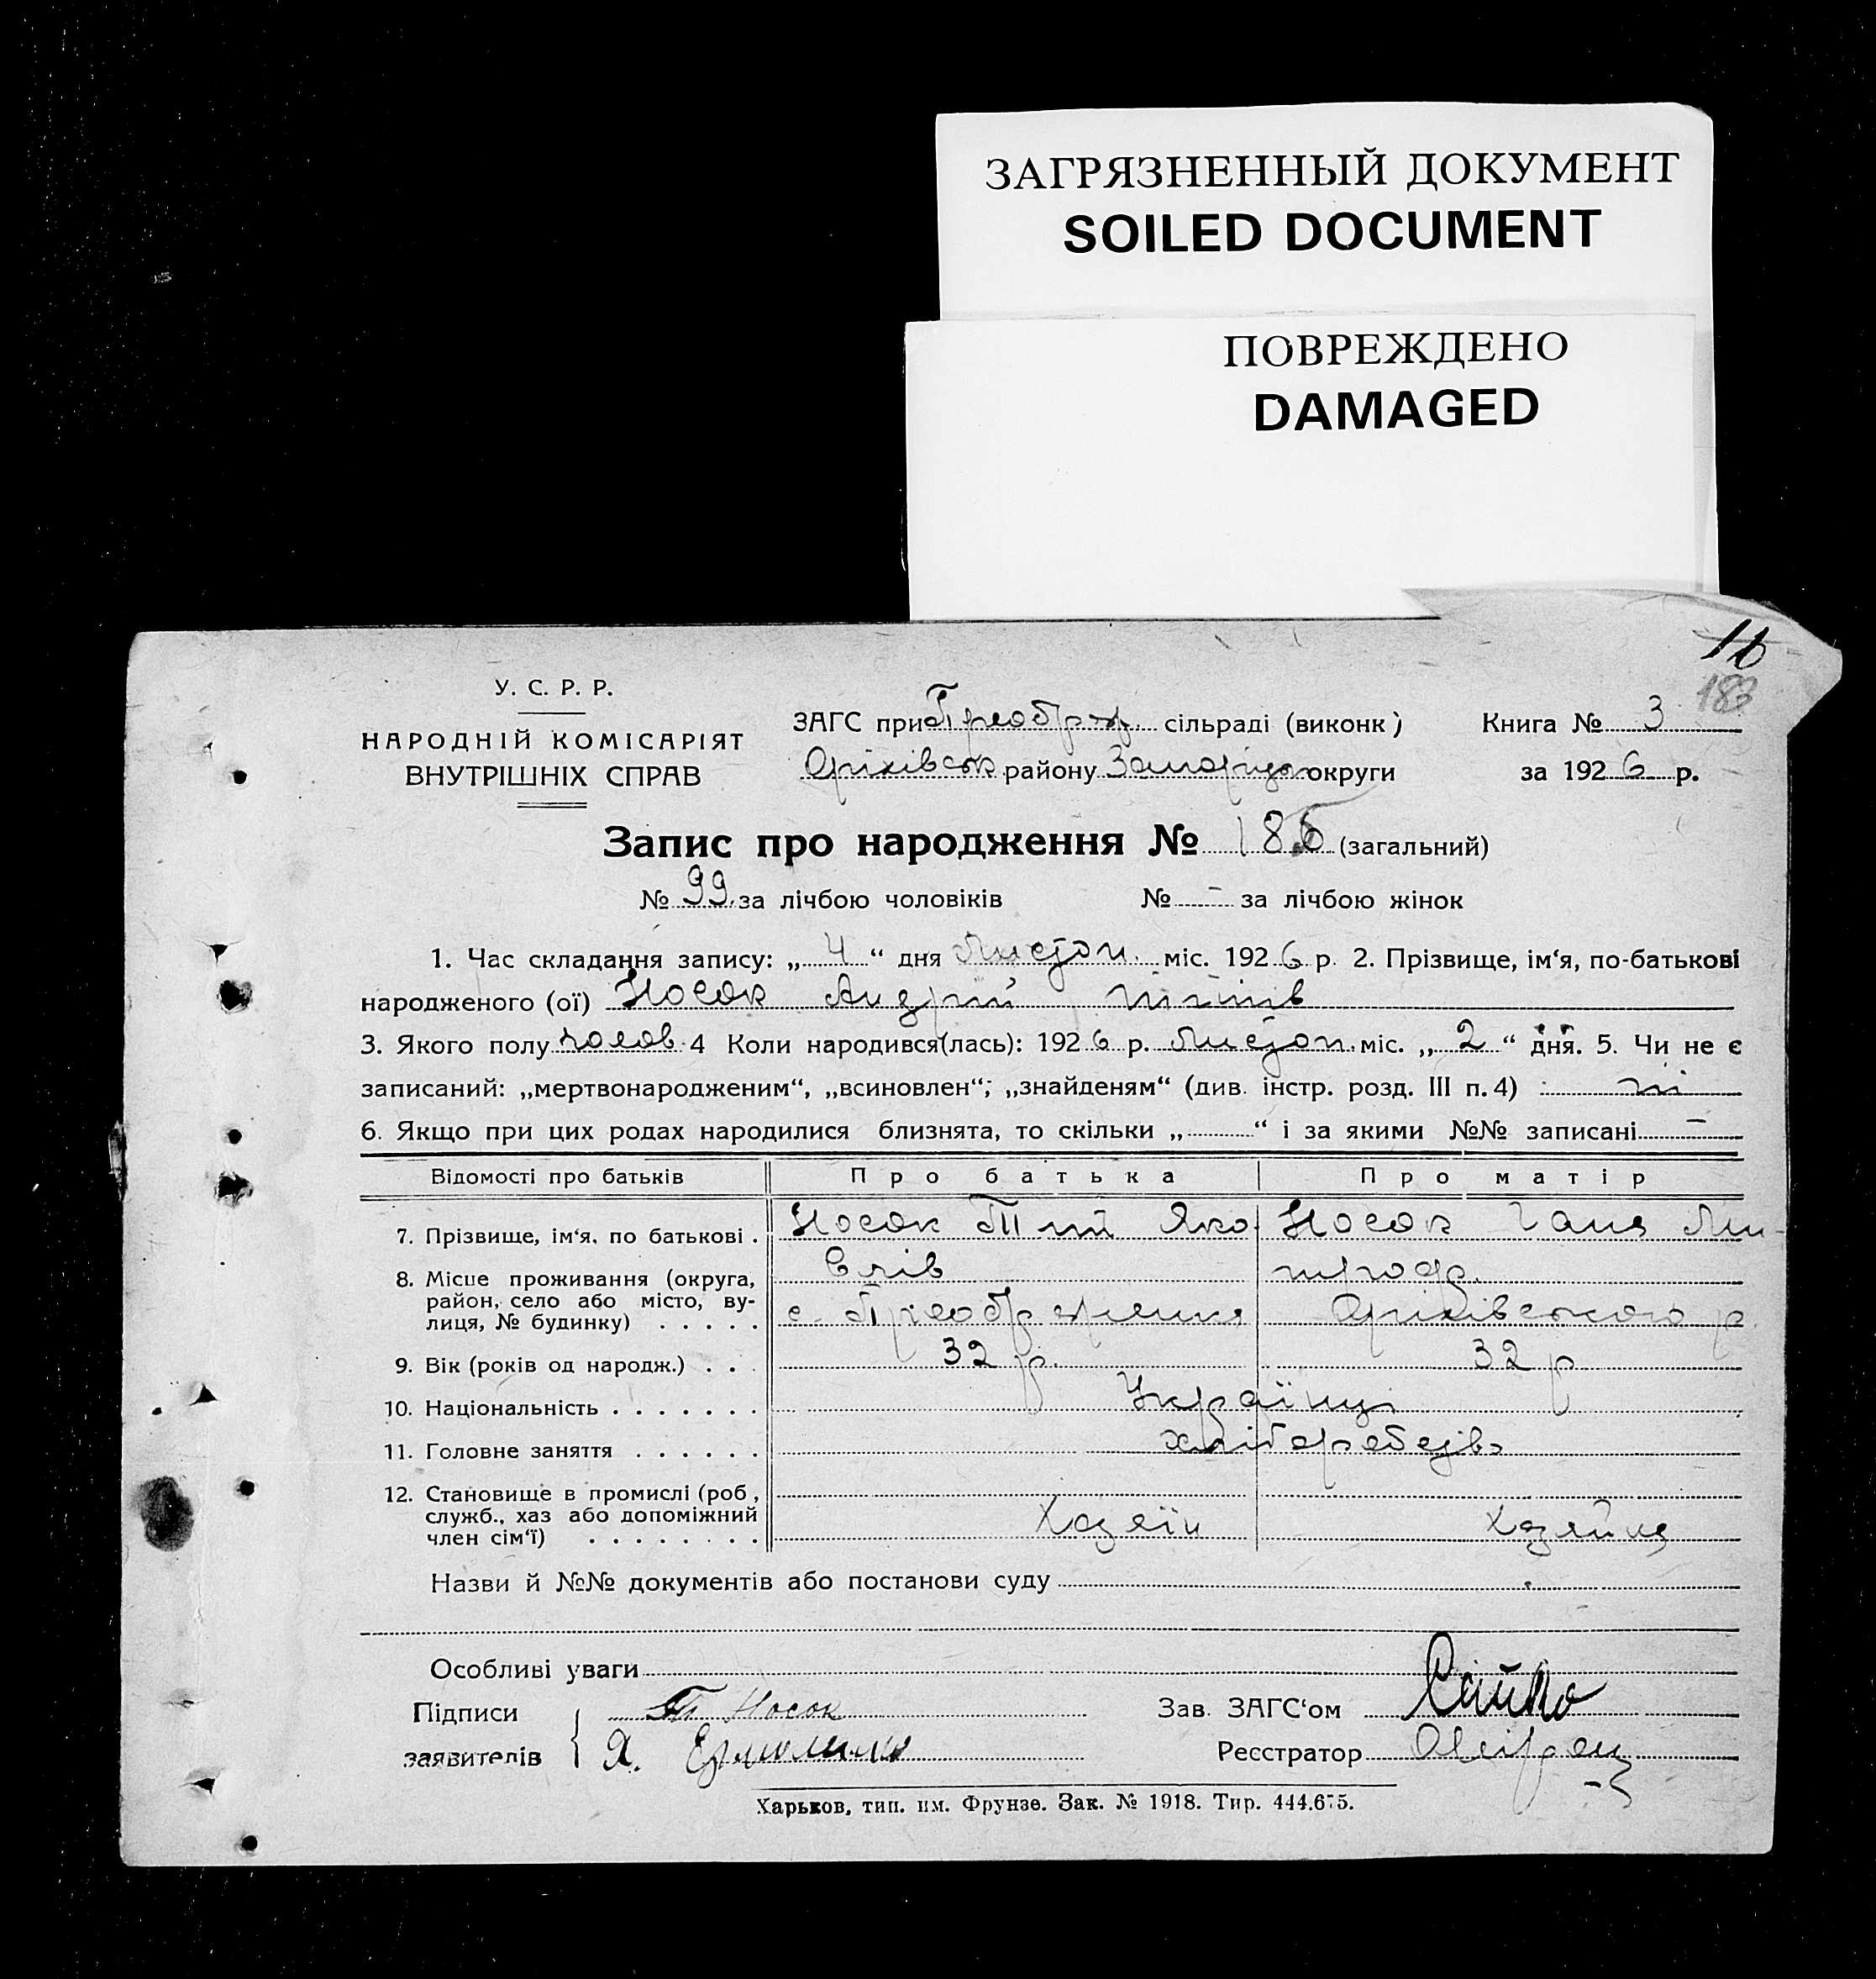 ЗАГРЯЗНЕННЫЙ ДОКУМЕНТ
SOILED DOCUMENT
ПОВРЕЖДЕНО
DAMAGED
16
183
У. С. Р. Р.
НАРОДНІЙ КОМІСАРІЯТ
ВНУТРІШНІХ СПРАВ
ЗАГС при Преображ. сільраді (виконк) Книга № 3
Оріхівськ. району Запоріз округи за 1926 р.
Запис про народження № 185 (загальний)
№ 99 за лічбою чоловіків № - за лічбою жінок
1. Час складання запису: „ 4 “ дня Листоп. міс. 1926 р. 2. Прізвище, ім‘я, по-батькові
народженого (ої) Носок Андрій
3. Якого полу чолов. 4 Коли народився(лась): 1926 р. Листоп. міс. „ 2 “ дня. 5. Чи не є
записаний: „мертвонародженим“, „всиновлен“; „знайденям“ (див. інстр. розд. III п. 4) ні
6. Якщо при цих родах народилися близнята, то скільки „ “ і за якими №№ записані -
Відомості про батьків Про батька Про матір
7. Прізвище, ім‘я, по батькові . Носок Тіт Яко Носок Ганя Ми-
влів трофр.
8. Місце проживання (округа,
район, село або місто, ву-
лиця, № будинку) . . . . . с. Преображенка Оріхівського р.
9. Вік (років од народж.) . . . 32 р. 32 р
10. Національність . . . . . . . Українці
11. Головне заняття . . . . . . хліборобств
12. Становище в промислі (роб ,
служб., хаз або допоміжний
член сім‘ї) . . . . . . . . Хазяїн Хазяйка
Назви й №№ документів або постанови суду
Особливі уваги
Підписи Т Носок Зав. ЗАГС‘ом
заявителів { Я. Реєстратор
Харьков, тип. им. Фрунзе. Зак. № 1918. Тир. 444.675.